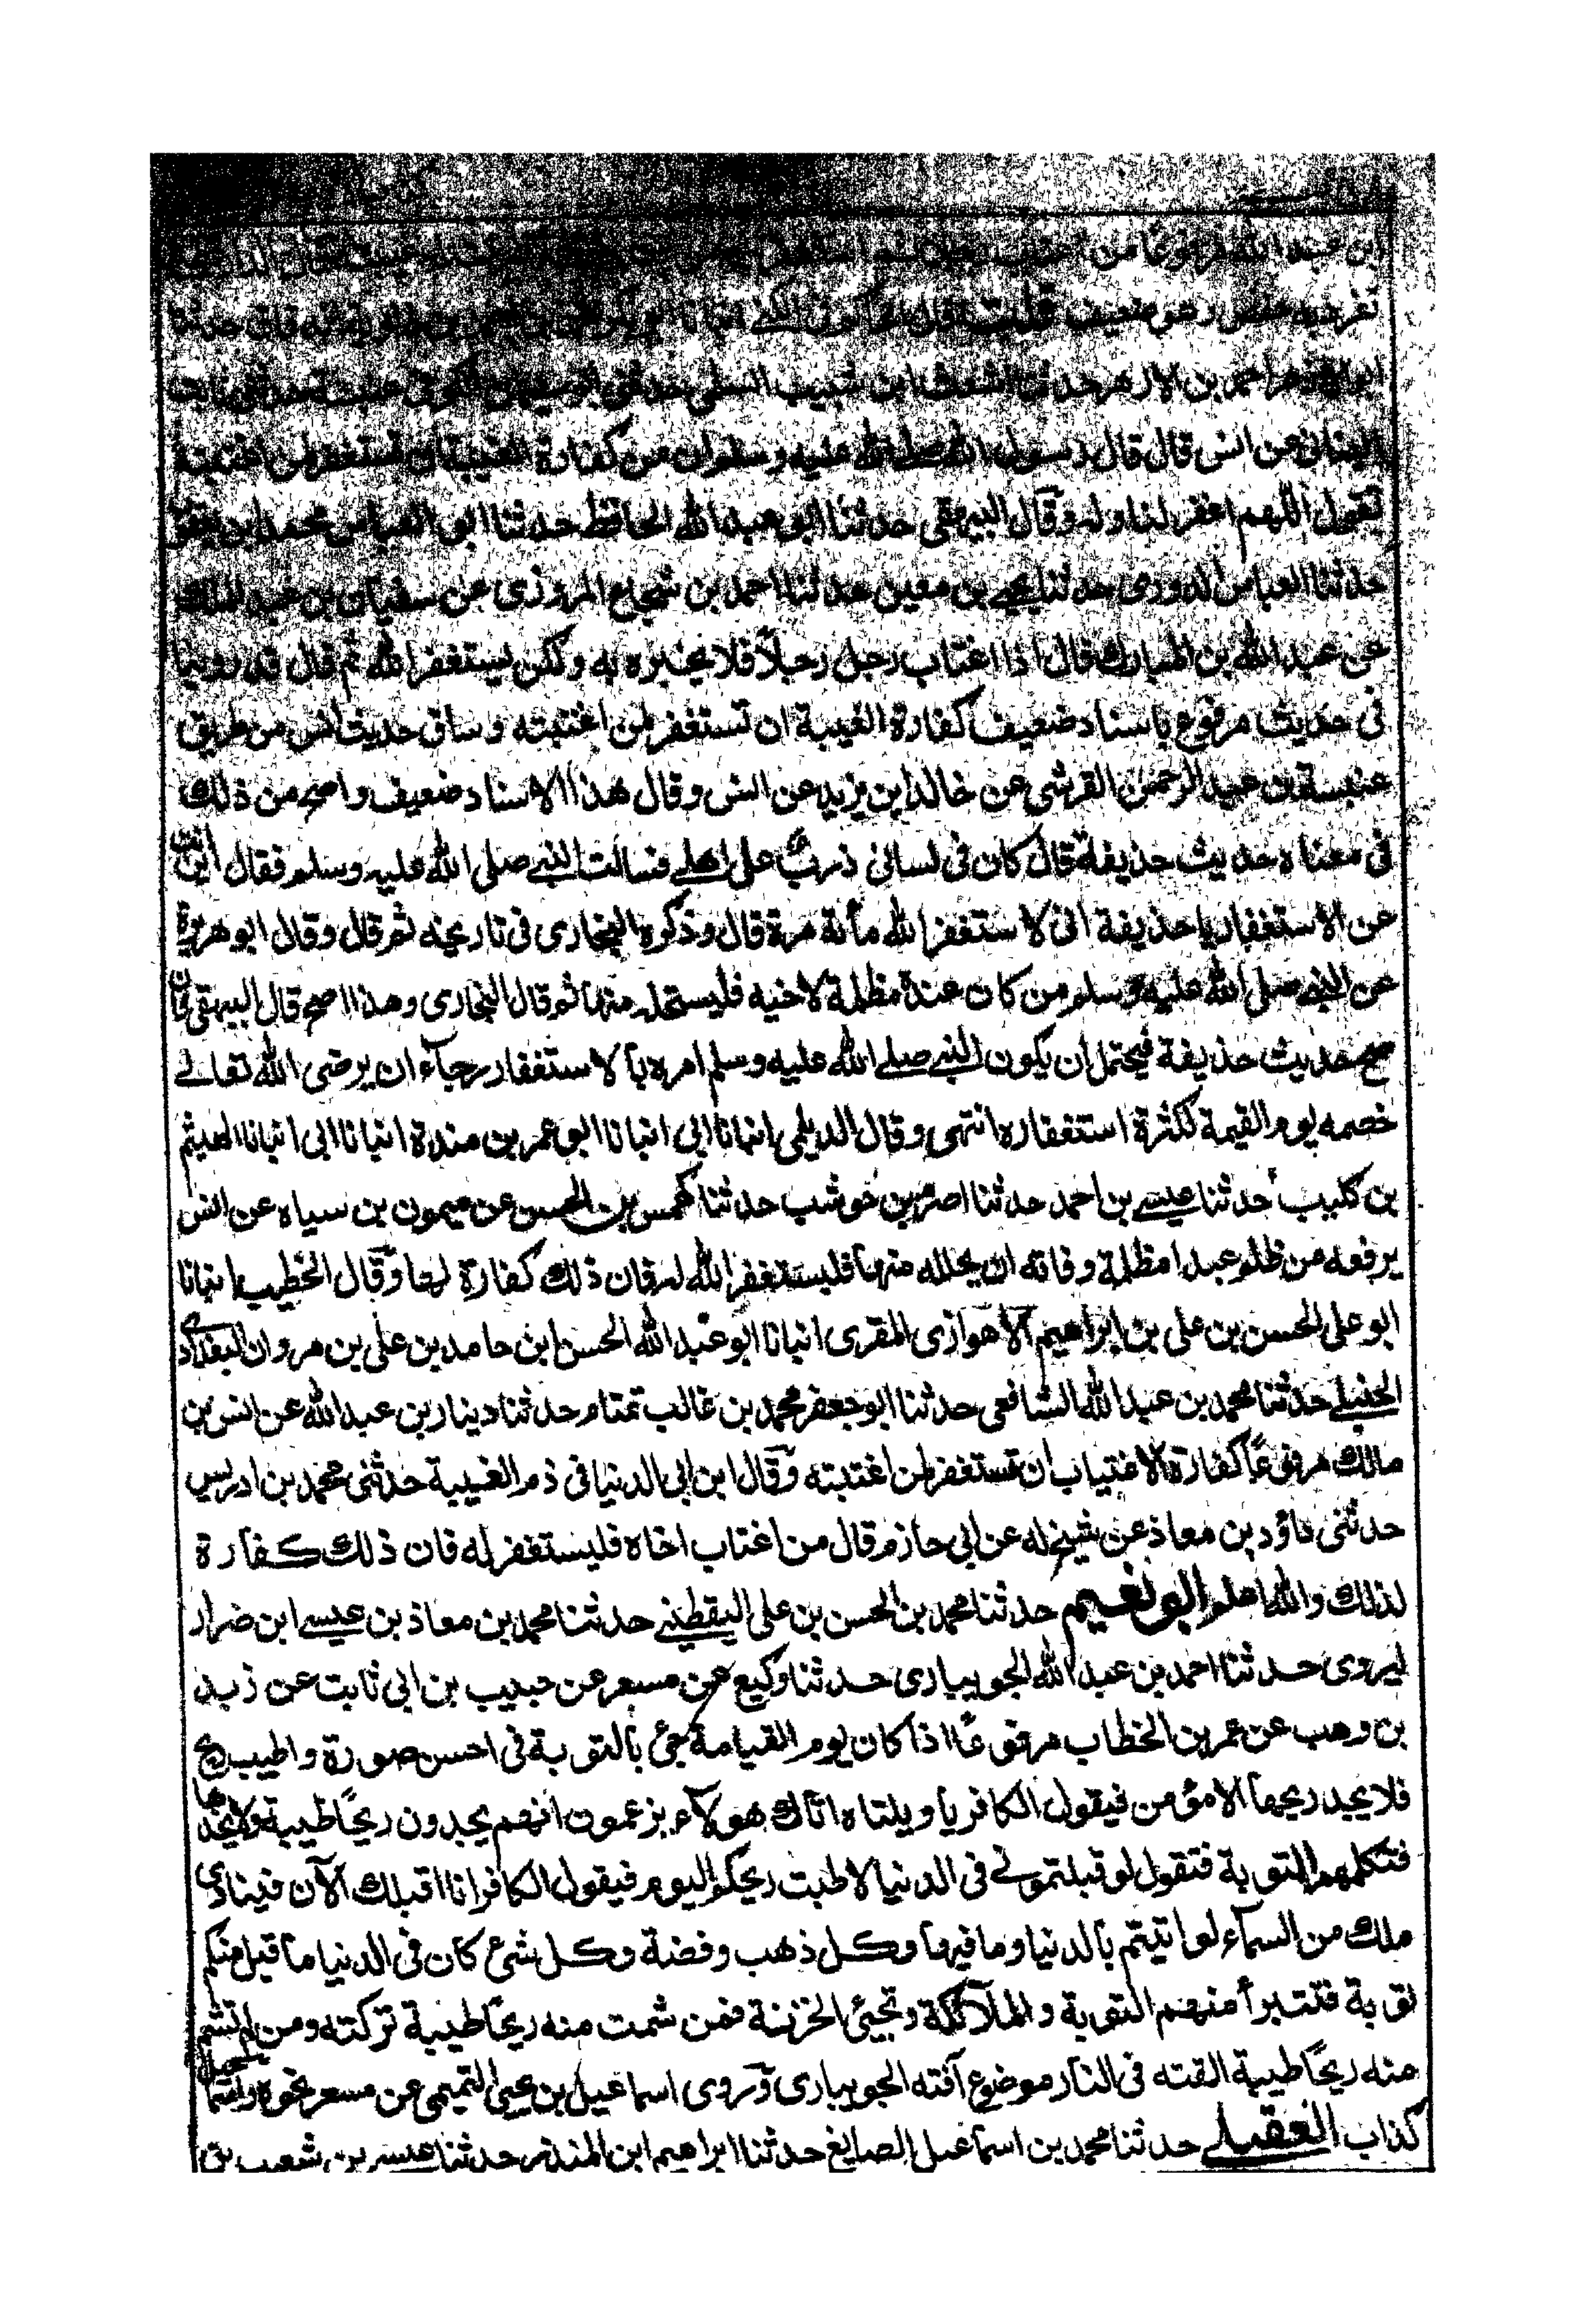 ابن عبد الله مرفوعا من
تفرد به حفص وهو ضعيف قلت
احمد بن الازهر حدثنا اشعث ابن شبيب السلمى حدثنى
عن انس قال قال رسول الله صلى الله عليه وسلم ان من كفارة الغيبة ان تستغفر لمن اغتبته
تقول اللهم اغفر لنا وله وقال البيهقى حدثنا ابو عبد الله الحافظ حدثنا ابو العباس محمد ابن يعقوب
حدثنا العباس الدورى حدثنا يحيى بن معين حدثنا احمد بن شجاع المروزى عن سفيان بن عبد الملك
عن عبد الله بن المبارك قال اذا اغتاب رجل رجلا فلا يخبره به ولكن يستغفر الله ثم قال قد روينا
فى حديث مرفوع باسناد ضعيف كفارة الغيبة ان تستغفر لمن اغتبته وساق حديث انس من طريق
عنبسة بن عبد الرحمن القرشى عن خالد ابن يزيد عن انس وقال هذا الاسناد ضعيف واصح من ذلك
فى معناه حديث حذيفة قال كان فى لسانى ذرب على اهلى فسالت النبى صلى الله عليه وسلم فقال اين انت
عن الاستغفار يا حذيفة انى لاستغفر الله مائة مرة قال وذكره البخارى فى تاريخه ثم قال وقال ابو هريرة
عن النبى صلى الله عليه وسلم من كان عنده مظلمة لاخيه فليستحله منها ثم قال البخارى وهذا اصح قال البيهقى فان
صح حديث حذيفة فيحتمل ان يكون النبى صلى الله عليه وسلم امره بالاستغفار رجاء ان يرضى الله تعالى
خصمه يوم القيمة لكثرة استغفاره انتهى وقال الديلمى انبانا ابى انبانا ابو عمر بن مندة انبانا ابى انبانا الهيثم
بن كليب حدثنا عيسى بن احمد حدثنا اصرم بن حوشب حدثنا كهمس بن الحسن عن ميمون بن سياه عن انس
يرفعه من ظلم عبدا مظلمة وفاته ان يحلله منها فليستغفر الله له فان ذلك كفارة لها وقال الخطيب انبانا
ابو على الحسن بن على بن ابراهيم الاهوازى المقرى انبانا ابو عبد الله الحسن ابن حامد بن على بن مروان البغدادى
الحنبلى حدثنا محمد بن عبد الله الشافعى حدثنا ابو جعفر محمد بن غالب تمتام حدثنا دينار بن عبد الله عن انس بن
مالك مرفوعا كفارة الاغتياب ان تستغفر لمن اغتبته وقال ابن ابى الدنيا فى ذم الغيبة حدثنى محمد بن ادريس
حدثنى داؤد بن معاذ عن شيخ له عن ابى حازم قال من اغتاب اخاه فليستغفر له فان ذلك كفارة
لذلك والله اعلم ابو نعيم حدثنا محمد بن الحسن بن على اليقطينى حدثنا محمد بن معاذ بن عيسى ابن ضرار
لهروى حدثنا احمد بن عبد الله الجويبارى حدثنا وكيع عن مسعر عن حبيب بن ابى ثابت عن زيد
بن وهب عن عمر بن الخطاب مرفوعا اذا كان يوم القيامة جئ بالتوبة فى احسن صورة واطيب ريح
فلا يجد ريحها الا مؤمن فيقول الكافر يا ويلتاه اتاك هولاء يزعمون انهم يجدون ريحا طيبة ولا نجدها
فتكلمهم التوبة فتقول لو قبلتمونى فى الدنيا لاطبت ريحكم اليوم فيقول الكافر انا اقبلك الآن فينادى
ملك من السماء لو اتيتم بالدنيا وما فيها وكل ذهب وفضة وكل شئ كان فى الدنيا ما قبل منكم
توبة فتتبرأ منهم التوبة والملآئكة وتجيئ الخزنة فمن شمت منه ريحا طيبة تركته ومن لم تشم
منه ريحا طيبة القته فى النار موضوع آفته الجويبارى وروى اسماعيل بن يحيى التيمى عن مسعر نحوه واسماعيل
كذاب العقيلى حدثنا محمد بن اسماعيل الصايغ حدثنا ابراهيم ابن المنذر حدثنا عيسى بن شعيب بن